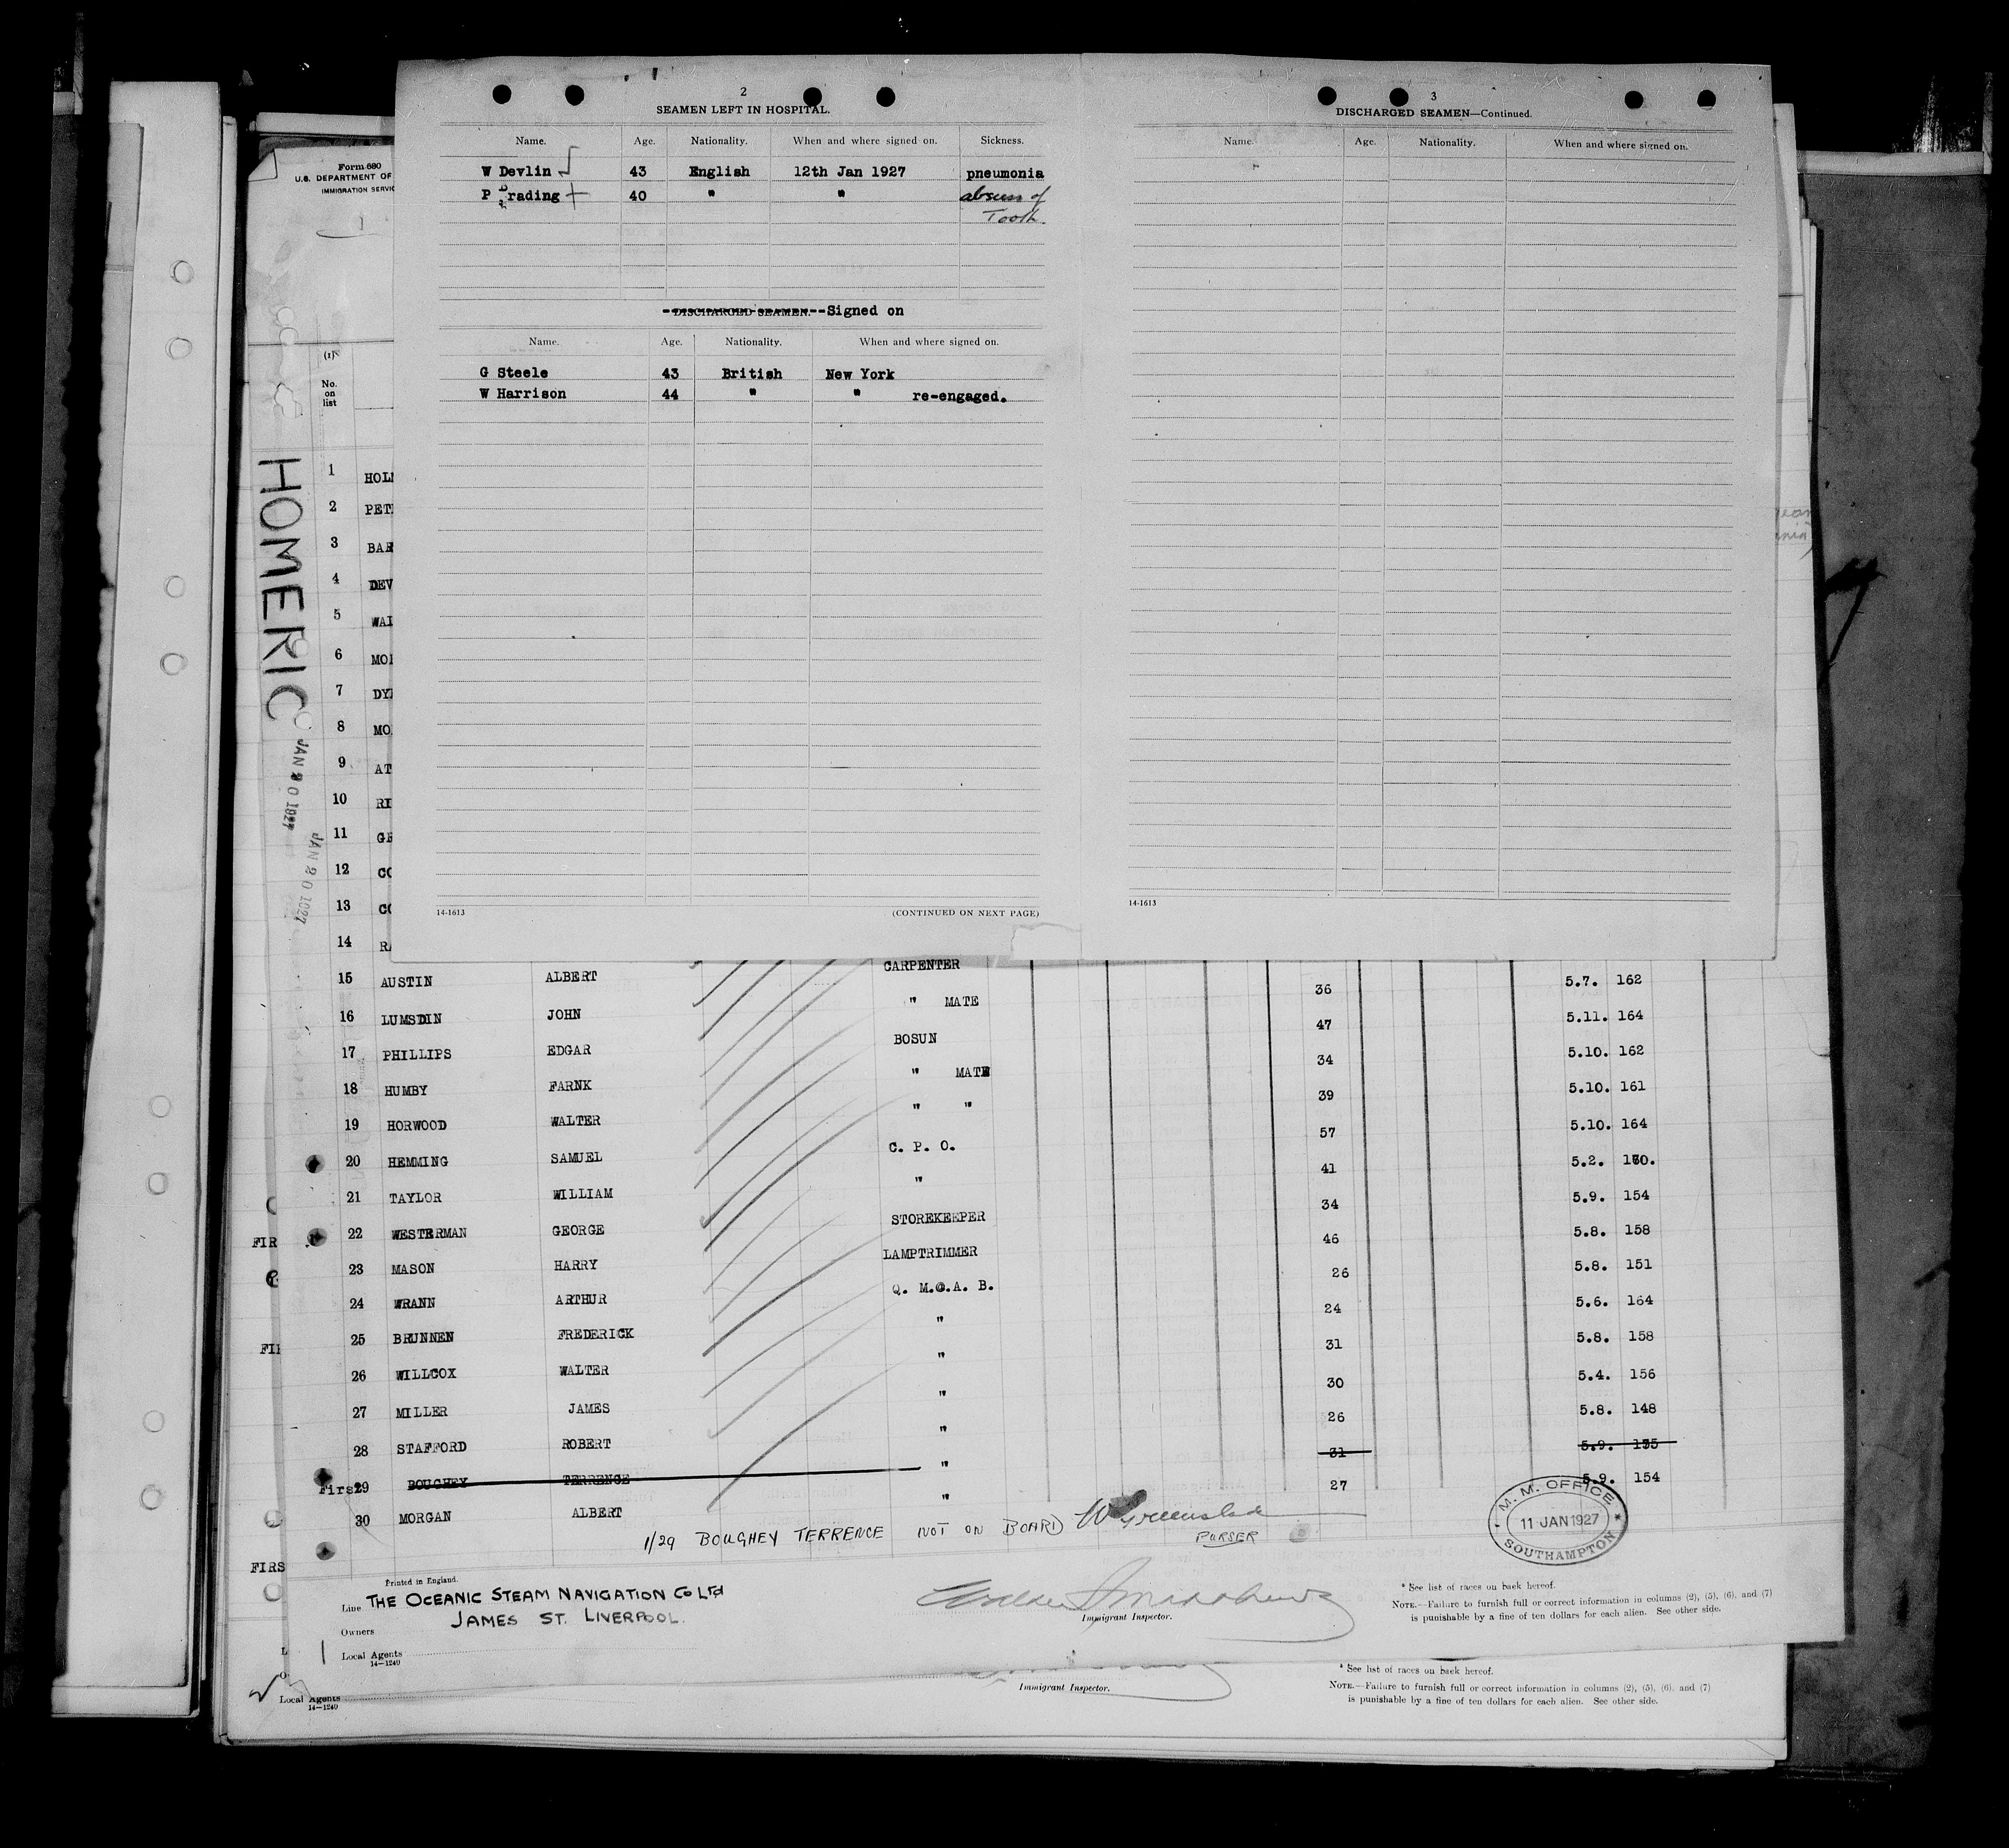 2
SEAMEN LEFT IN HOSPITAL.
Name. Age. Nationality. When and where signed on. Sickness.
W Devlin 43 English 12th Jan 1927 pneumonia
P Brading 40 " " absess of
Tooth
DISCHARGED SEAMEN.--Signed on
Name. Age. Nationality. When and where signed on.
G Steele 43 British New York
W Harrison 44 " " re-engaged.
14-1613 (CONTINUED ON NEXT PAGE)
3
DISCHARGED SEAMEN—Continued.
Name. Age. Nationality. When and where signed on.
14-1613
Form 680
U.S. DEPARTMENT OF
IMMIGRATION SERVIC
(1)
No.
on
list
HOMERIC
JAN 20 1927
JAN 20 1927
1 HOL
2 PET
3 BAR
4 DEV
5 WAI
6 MO
7 DY
8 MO
9 AT
10 RI
11 GR
12 CO
13 CO
14 RA
CARPENTER
15 AUSTIN ALBERT " MATE 36 5.7. 162
16 LUMSDIN JOHN BOSUN 47 5.11. 164
17 PHILLIPS EDGAR " MATE 34 5.10. 162
18 HUMBY FARNK " " 39 5.10. 161
19 HORWOOD WALTER C. P. O. 57 5.10. 164
20 HEMMING SAMUEL " 41 5.2.
21 TAYLOR WILLIAM STOREKEEPER 34 5.9. 154
22 WESTERMAN GEORGE LAMPTRIMMER 46 5.8. 158
23 MASON HARRY Q. M. A. B. 26 5.8. 151
24 WRANN ARTHUR " 24 5.6. 164
25 BRUNNEN FREDERICK " 31 5.8. 158
26 WILLCOX WALTER " 30 5.4. 156
27 MILLER JAMES " 26 5.8. 148
28 STAFFORD ROBERT " 31 5.9.
First 29 BOUGHEY TERRENCE " 27 5.9. 154
30 MORGAN ALBERT
1/29 BOUGHEY TERRENCE NOT ON BOARD W Greenslade
PURSER
M. M. OFFICE
11 JAN 1927
SOUTHAMPTON
FIR
FI
FIRS
Printed in England.
Line THE OCEANIC STEAM NAVIGATION Co Ltd
JAMES ST. LIVERPOOL.
Owners
Local Agents
14—1240
Immigrant Inspector.
* See list of races on back hereof.
NOTE.—Failure to furnish full or correct information in columns (2), (5), (6), and (7)
is punishable by a fine of ten dollars for each alien. See other side.
Local Agents
14—1240
Immigrant Inspector.
* See list of races on back hereof.
NOTE.—Failure to furnish full or correct information in columns (2), (5), (6), and (7)
is punishable by a fine of ten dollars for each alien. See other side.